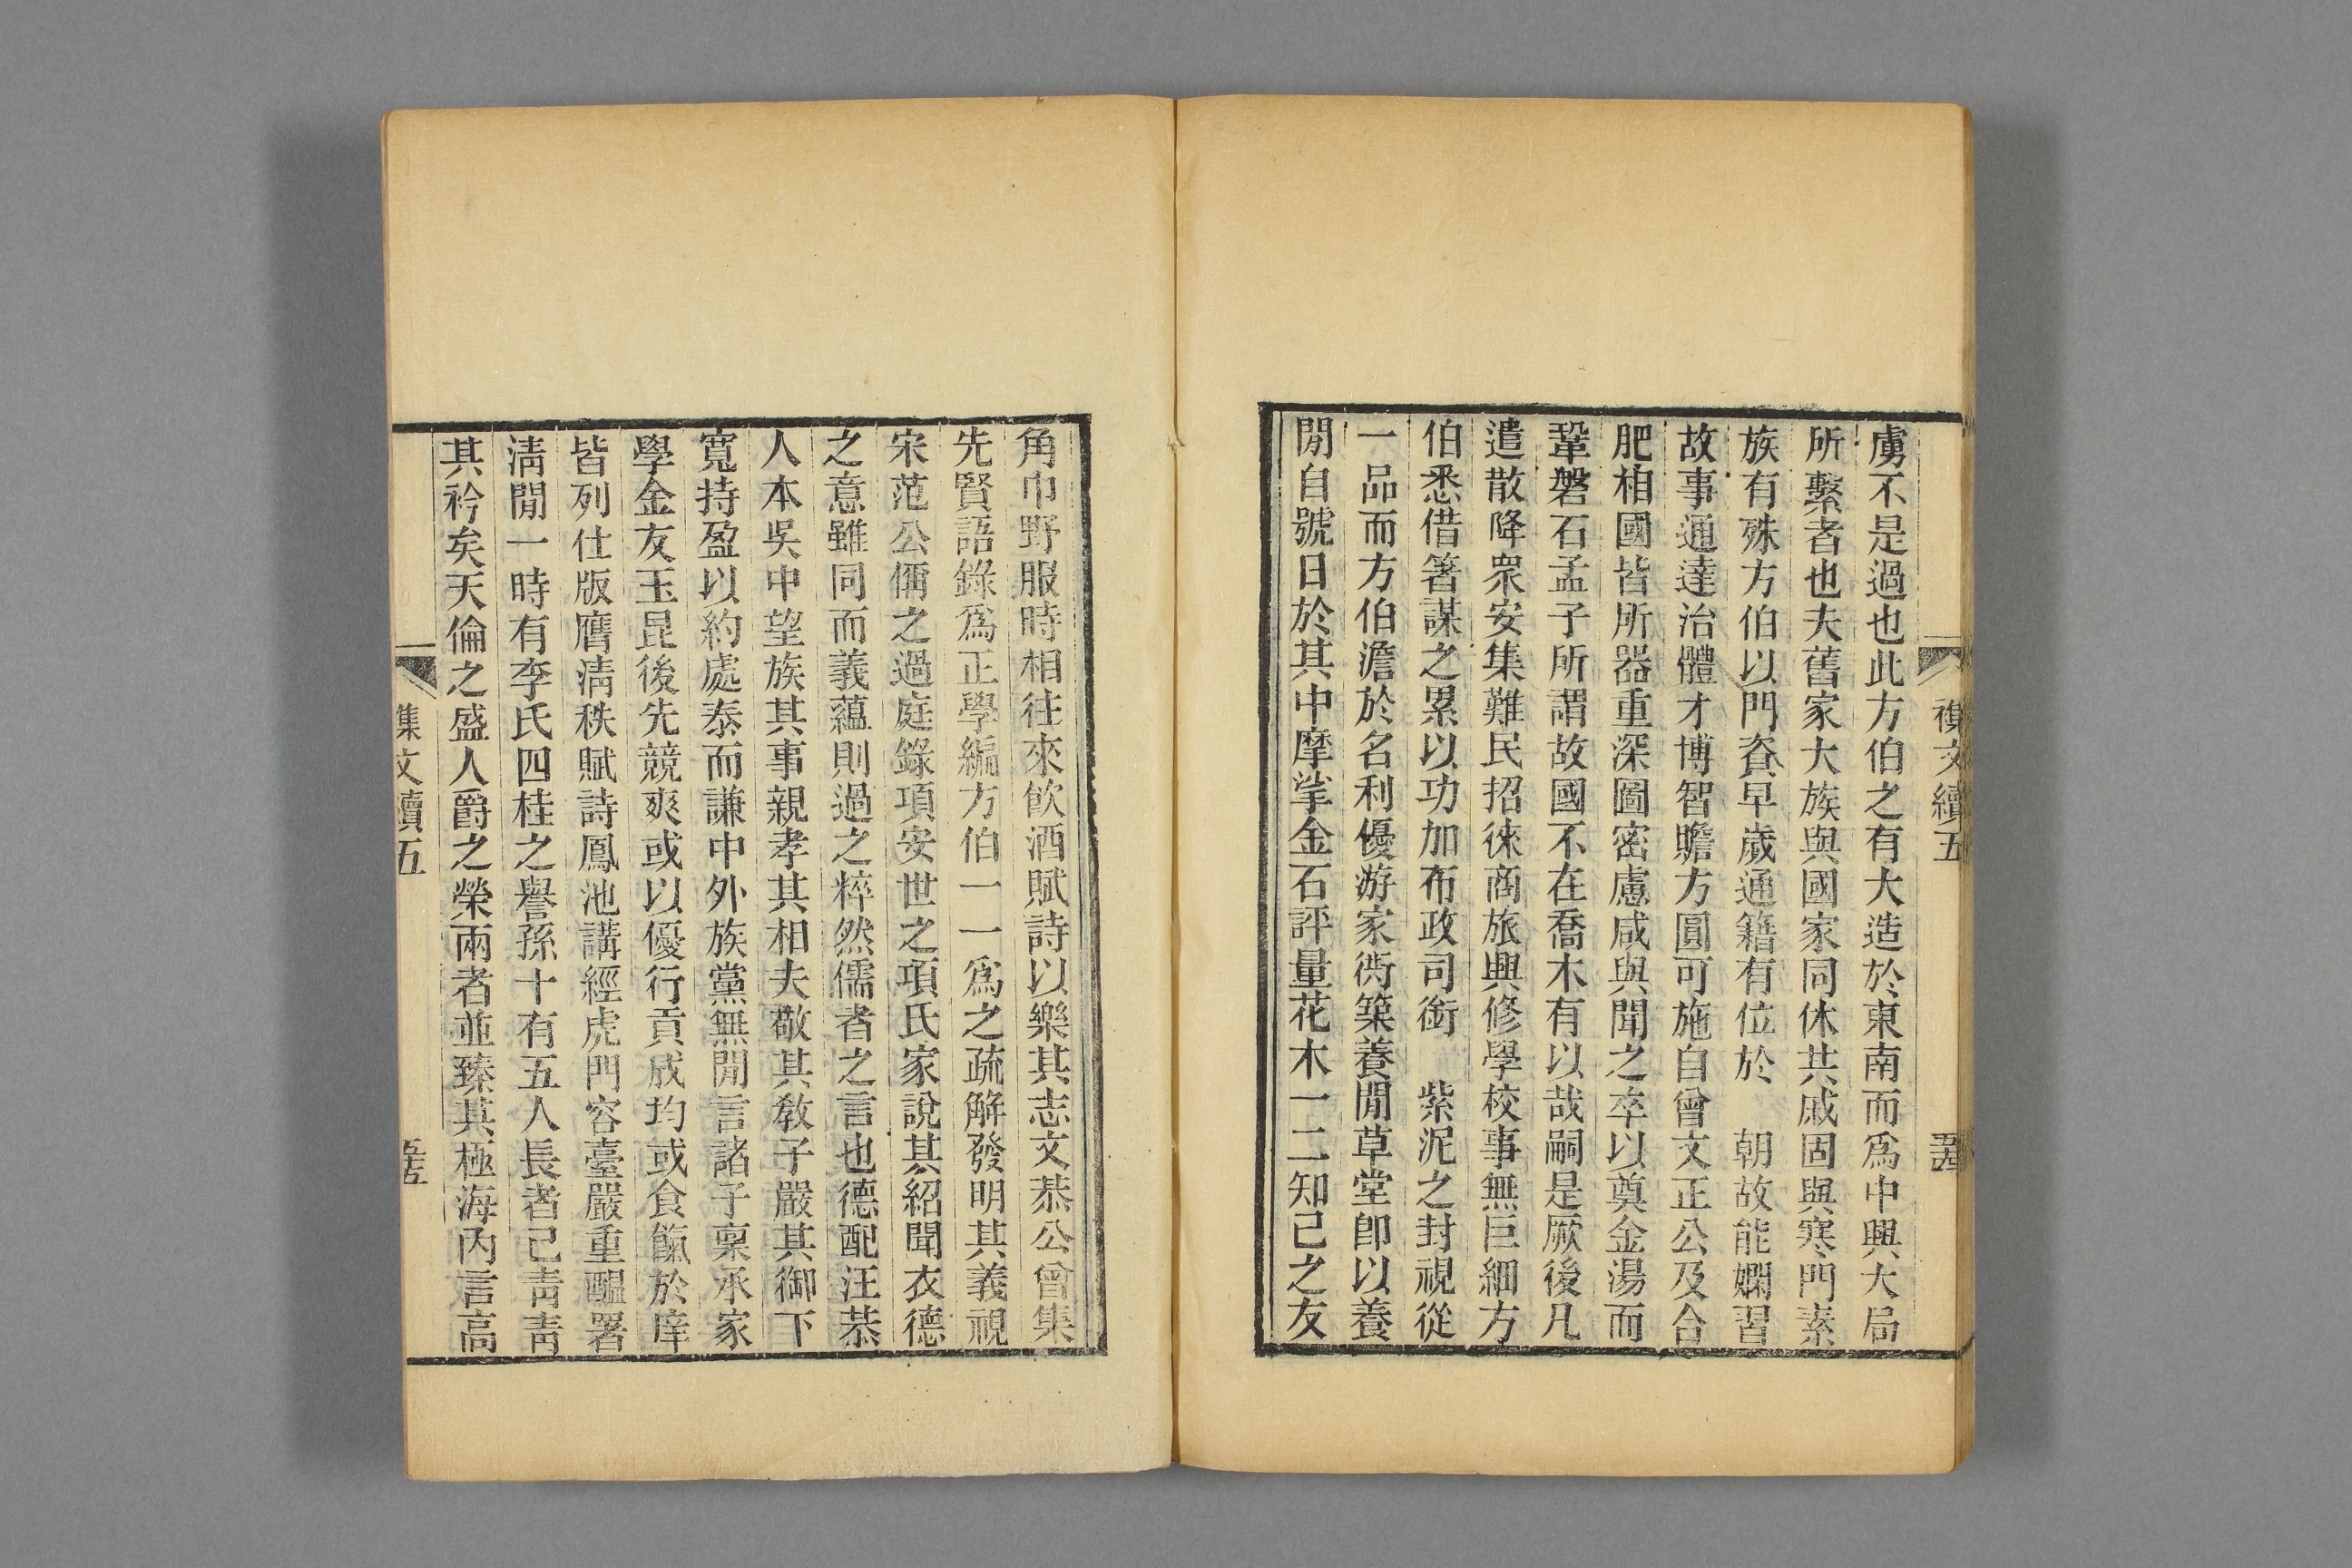 虜不是過也此方伯之有大造於東南而爲中興大局
所繫者也夫舊家大族與國家同休共戚固與寒門素
族有殊方伯以門資早歲通籍有位於　朝故能嫻習
故事通達治體才博智贍方圓可施自曾文正公及合
肥相國皆所器重深圖密慮咸與聞之卒以奠金湯而
鞏磐石孟子所謂故國不在喬木有以哉嗣是厥後凡
遣散降眾安集難民招徠商旅興修學校事無巨細方
伯悉借箸謀之累以功加布政司銜　紫泥之封視從
一品而方伯澹於名利優游家衖築養閒草堂卽以養
閒自號日於其中摩挲金石評量花木一二知己之友
襍文續五
五十四
角巾野服時相往來飮酒賦詩以樂其志文恭公曾集
先賢語錄爲正學編方伯一一爲之疏解發明其義視
宋范公偁之過庭錄項安世之項氏家說其紹聞衣德
之意雖同而義蘊則過之粹然儒者之言也德配汪恭
人本吳中望族其事親孝其相夫敬其敎子嚴其御下
寬持盈以約處泰而謙中外族黨無閒言諸子稟承家
學金友玉昆後先競爽或以優行貢成均或食餼於庠
皆列仕版膺淸秩賦詩鳳池講經虎門容臺嚴重醞署
淸閒一時有李氏四桂之譽孫十有五人長者已靑靑
其衿矣天倫之盛人爵之榮兩者並臻其極海內言高
文續五
五十五